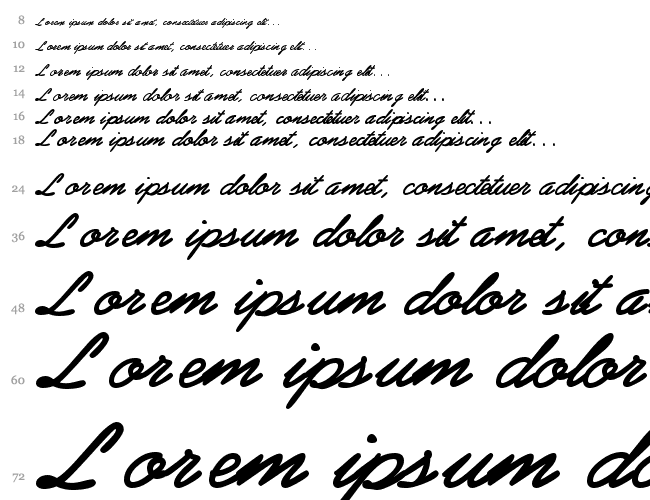 8 Lorem ipsum dolor sit amet, consectetuer adipiscing elit...
10 Lorem ipsum dolor sit amet, consectetuer adipiscing elit...
12 Lorem ipsum dolor sit amet, consectetuer adipiscing elit...
14 Lorem ipsum dolor sit amet, consectetuer adipiscing elit...
16 Lorem ipsum dolor sit amet, consectetuer adipiscing elit...
18 Lorem ipsum dolor sit amet, consectetuer adipiscing elit...
24 Lorem ipsum dolor sit amet, consectetuer adipiscing
36 Lorem ipsum dolor sit amet, cons
48 Lorem ipsum dolor sit a
60 Lorem ipsum dolor
72 Lorem ipsum do